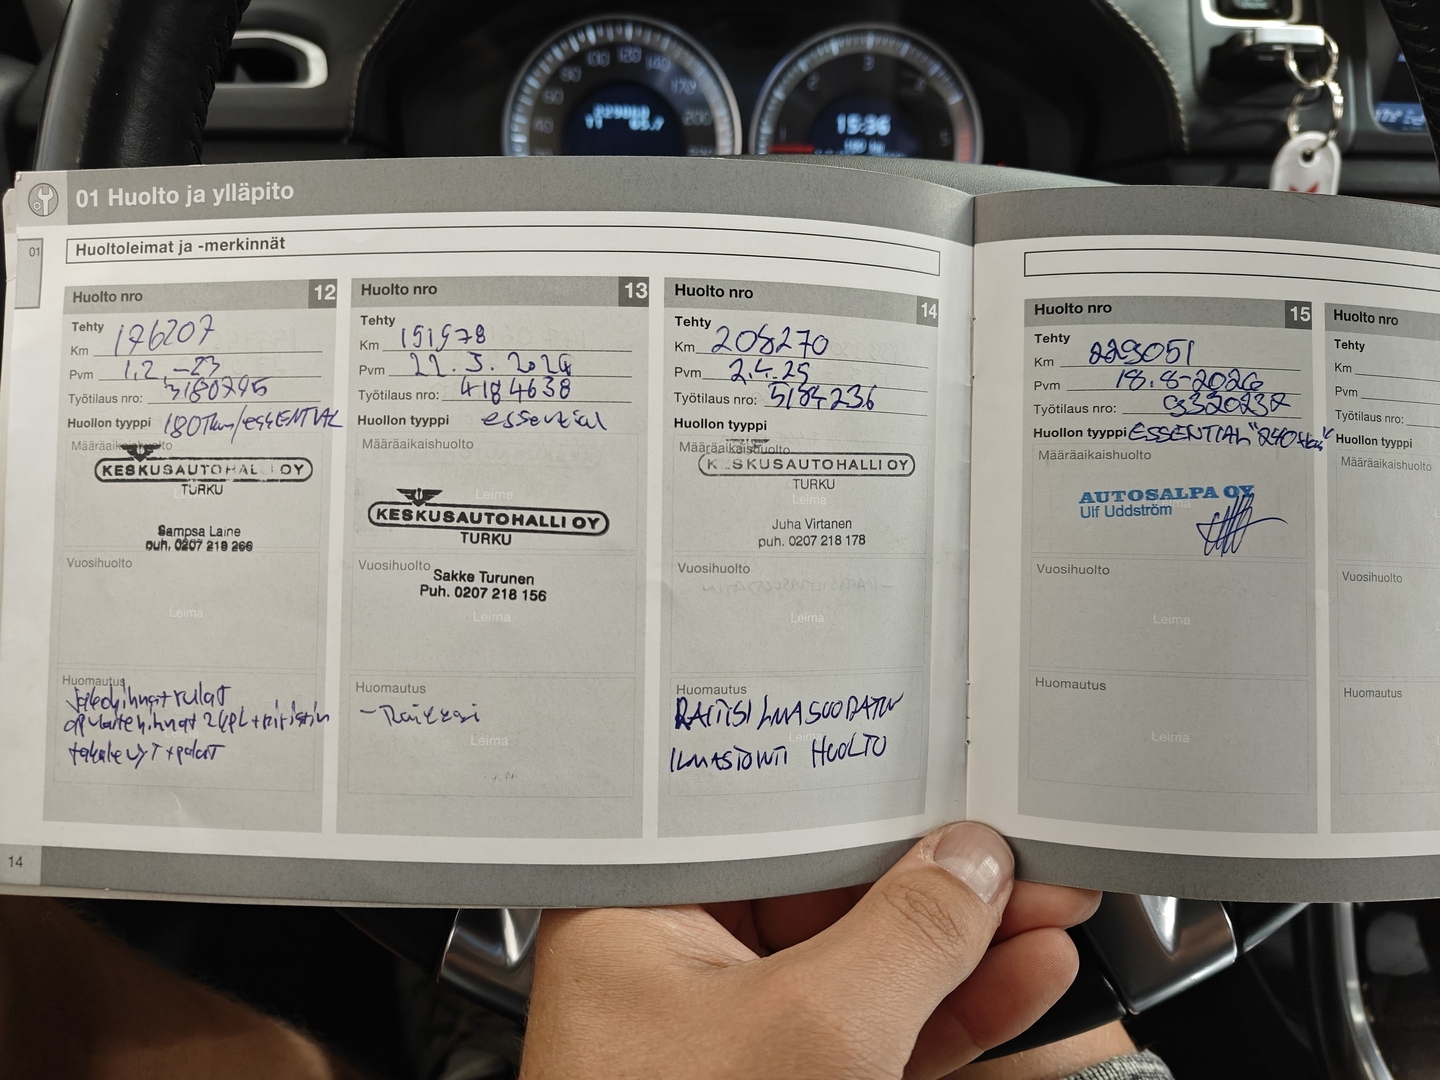 01 Huolto ja ylläpito
01
Huoltoleimat ja -merkinnät
Huolto nro 12
Tehty
Km 176207
Pvm 1.2.-23
Työtilaus nro: 3180795
Huollon tyyppi 180Tkm/ESSENTIAL
Määräaikaishuolto
KESKUSAUTOHALLI OY
TURKU
Sampsa Laine
puh. 0207 218 266
Vuosihuolto
Leima
Huomautus
14
Huolto nro 13
Tehty
Km 191978
Pvm 22.3.2024
Työtilaus nro: 4184638
Huollon tyyppi essential
Määräaikaishuolto
Leima
KESKUSAUTOHALLI OY
TURKU
Vuosihuolto
Sakke Turunen
Puh. 0207 218 156
Leima
Huomautus
Leima
Huolto nro 14
Tehty
Km 208270
Pvm 2.4.25
Työtilaus nro: 5184236
Huollon tyyppi
Määräaikaishuolto
KESKUSAUTOHALLI OY
TURKU
Leima
Juha Virtanen
puh. 0207 218 178
Vuosihuolto
Leima
Huomautus
RAITISILMASUODATIN
ILMASTOINTI HUOLTO
Huolto nro 15
Tehty
Km 229051
Pvm 18.8-2026
Työtilaus nro:
Huollon tyyppi ESSENTIAL "240tkm"
Määräaikaishuolto
AUTOSALPA OY
Ulf Uddström
Vuosihuolto
Leima
Huomautus
Leima
Huolto nro
Tehty
Km
Pvm
Työtilaus nro:
Huollon tyyppi
Määräaikaishuolto
Vuosihuolto
Huomautus
15:36